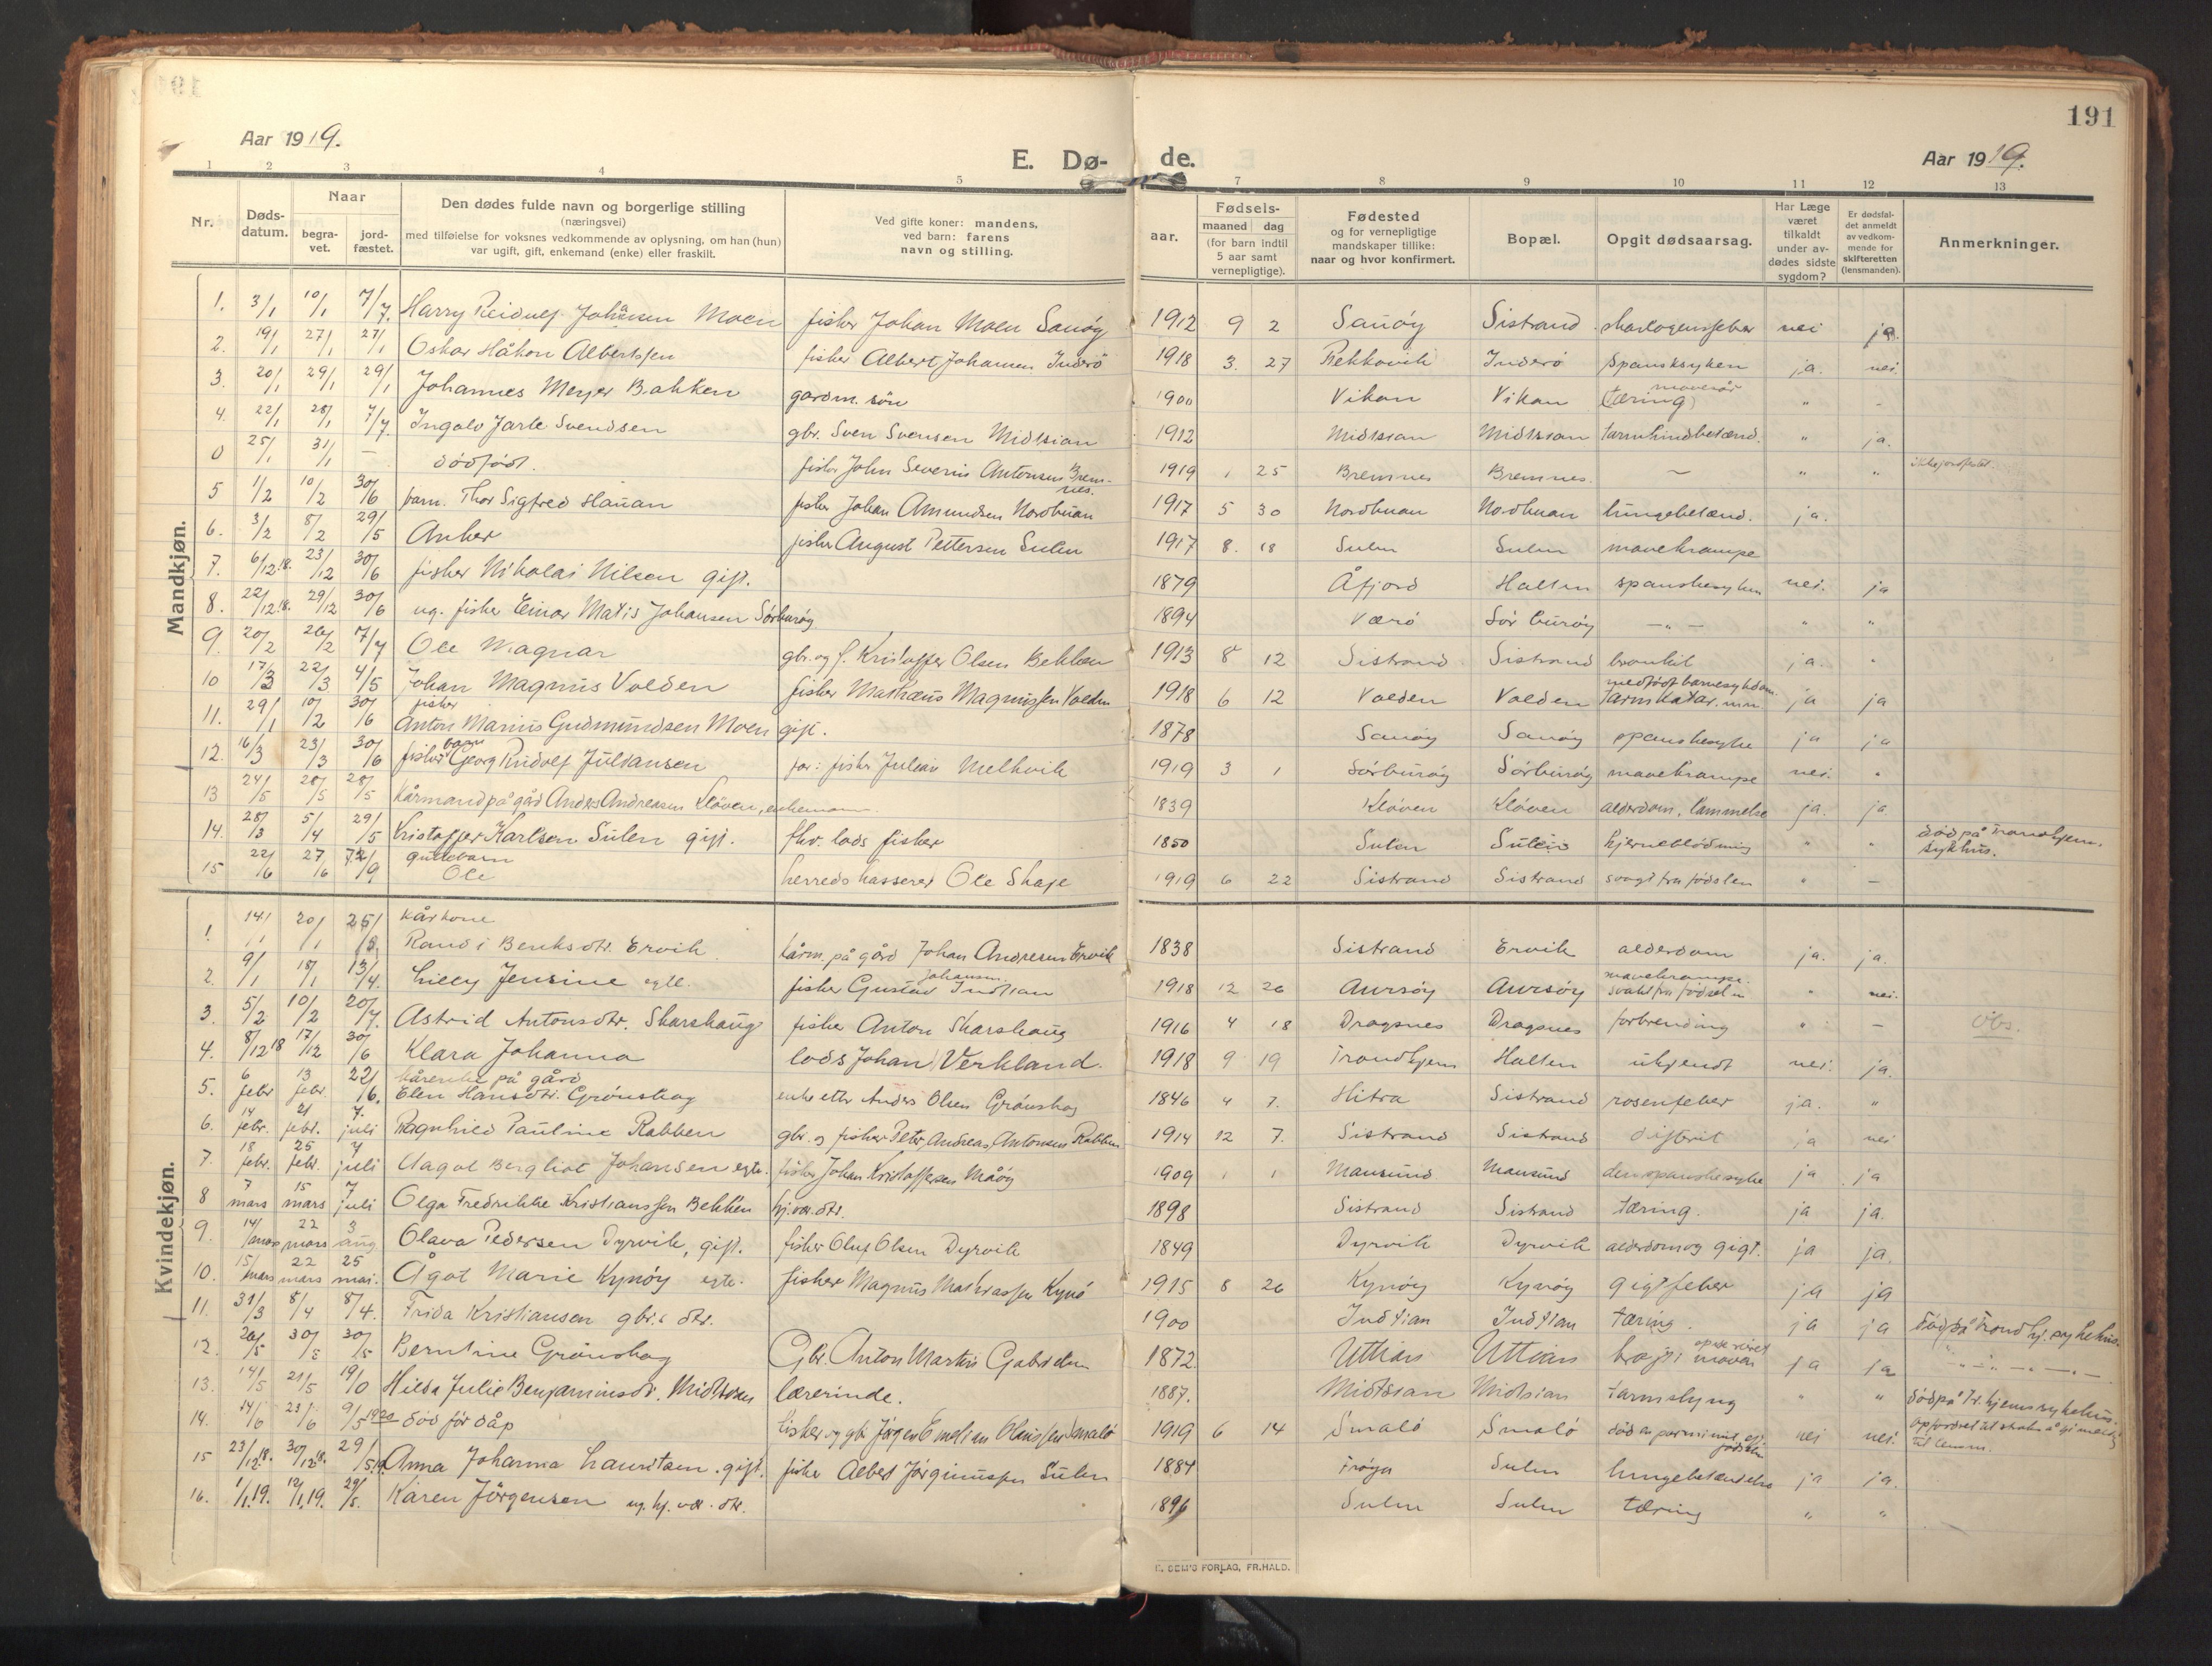 191
Aar 1919.
E. Dø- de.
Aar 1919.
1 2 3 4 5 7 8 9 10 11 12 13
Nr.
Døds-datum.
Naar
begra-vet.
jord-fæstet.
Den dødes fulde navn og borgerlige stilling
(næringsvei)
med tilføielse for voksnes vedkommende av oplysning, om han (hun)
var ugift, gift, enkemand (enke) eller fraskilt.
Ved gifte koner: mandens,
ved barn: farens
navn og stilling.
Fødsels-
aar.
maaned dag
(for barn indtil
5 aar samt
vernepligtige).
Fødested
og for vernepligtige
mandskaper tillike:
naar og hvor konfirmert.
Bopæl.
Opgit dødsaarsag.
Har Læge
været
tilkaldt
under av-
dødes sidste
sygdom?
Er dødsfal-
det anmeldt
av vedkom-
mende for
skifteretten
(lensmanden).
Anmerkninger.
Mandkjøn.
1. 3/1 10/1 7/7. Harry Reidulf Johansen Moen fisker Johan Moen Sanöy 1912 9 2 Sanöy Sistrand skarlagensfeber nei ja.
2. 19/1 27/1 27/1 Oskar Håkon Albertssen fisker Albert Johansen Inderö 1918 3. 27 Rekkavik Inderö spansksyken ja. nei.
3. 20/1 29/1 29/1 Johannes Meyer Bakken gardm. sön 1900 Vikan Vikan (tæring) " -
4. 22/1 28/1 7/7 Ingolv Jarle Svendsen gbr. Sven Svensen Midtsian 1912 Midtsian Midtsian tarmhindbetænd. " ja.
0 25/1 31/1 — dödfödt. fisker John Severin Antonsen Bremnes. 1919 1 25 Bremnes Bremnes. ~ " " ikke jordfestet.
5 1/2 10/2 30/6 barn. Thor Sigfred Hauan fisker Johan Amundsen Nordbuan 1917 5 30 Nordbuan Nordbuan lungebetænd. ja.
6. 3/2 8/2 29/5 Anker fisker August Pettersen Sulen 1917 8. 18 Sulen Sulen mavekrampe
7. 6/12 18. 23/12 30/6 fisker Nikolai Nilsen gift. 1879 Åfjord Halten spanskesyken nei. ja
8. 22/12 18. 29/12 30/6 ug. fisker Einar Matis Johansen Sörburöy 1894 Værö Sör buröy —"— " "
9. 20/2 26/2 7/7 Ole Magnar gbr. og f. Kristoffer Olsen Bekken 1913 8 12 Sistrand Sistrand bronkit ja. "
10 17/3 22/3 4/5 Johan Magnus Valden fisker Mathæus Magnussen Valden 1918 6 12 Valden Valden medfödt barnesykdom. tarmkatar. m.m. ja ja
11. 29/1 10/2 30/6 fisker Anton Marius Gudmundsen Moen gift. 1878 Sanöy Sanöy spanskesyke ja ja
12. 16/3 23/3 30/6 fisker barn Georg Rudolf Juldansen far: fisker Julian Melkvik 1919 3 1 Sörburöy Sörburöy mavekrampe nei. "
13 24/5 28/5 28/5 Kårmand på gård Anders Andreasen Klöven, enkemann 1839 Klöven Klöven alderdom, lammelse ja. ja.
14. 28/3 5/4 29/5 Kristoffer Karlsen Sulen gift. fhv. lods fisker 1850 Sulen Sulen hjerneblödning " " död på Trondhjem. sykhus.
15 22/6 27/6 7.21/9 guttebarn Ole herredskasserer Ole Skage 1919 6 22 Sistrand Sistrand svagt fra födslen " —
Kvindekjøn.
1. 14/1 20/1 25/8. Kårkone Randi Benksdtr. Ervik. kårm. på gård Johan Andresen Ervik 1838 Sistrand Ervik alderdom ja. ja.
2. 9/1 18/1 13/4. Lilly Jensine egte. fisker Gustav Johansen Indsian 1918 12 26 Aursöy Aursöy mavekrampe. svakt fra födselen " nei.
3. 5/2 10/2 20/7. Astrid Antonsdtr. Skarshaug fisker Anton Skarshaug 1916 4 18 Dragsnes Dragsnes forbrending " — Obs.
4. 8/12 18 17/12 30/6 Klara Johanna lods Johan Verkland. 1918 9 19 Trondhjem Halten ukjendt nei. ja.
5. 6 febr 13 febr. 22/6. kårenke på gård Elen Hansdtr. Grönskag enke etter Anders Olsen Grönskag 1846 4 7. Hitra Sistrand rosenfeber ja. "
6. 14 febr. 21 febr. 7. juli Ragnhild Pauline Rabben gbr. og fisker Peter Andreas Antonsen Rabben 1914 12 7. Sistrand Sistrand difterit ja nei
7. 18 febr. 25 febr. 7 juli Aagot Bergliot Johansen egte. fisker Johan Kristoffersen Måöy 1909 1 1 Mausund Mausund den spanskesyke ja ja
8 7 mars 15 mars 7 juli Olga Fredrikke Kristianssen Bekken hj.vær. dtr. 1898 Sistrand Sistrand tæring. ja ja.
9 14/mars 22 mars 3 aug. Olava Pedersen Dyrvik, gift. fisker Oluf Olsen Dyrvik 1849 Dyrvik Dyrvik alderdom og gigt. ja ja.
10. 15/mars 22 mars 25 mai. Ågot Marie Kynöy egte. fisker Magnus Mathiassen Kynö 1915 8 26 Kynöy Kynöy gigtfeber ja ja
11. 31/3 8/4 8/4. Frida Kristiansen gbr.s dtr. 1900 Indsian Indsian tæring. ja ja död på Trondhj. sykehus.
12. 20/5 30/5 30/5 Berntine Grönskag Gbr. Anton Martin Gabrielsen 1872. Uttian Uttian operirert maven ja ja — " —
13. 14/5 21/5 19/0 Hilda Julie Benjaminsdtr. Midtsian lærerinde. 1887. Midtsian Midtsian tarmslyng " " död på Tr.hjems sykehus.
14. 14/6 23/6 9/5 1920 död för dåp fisker og gbr Jörgen Emelian Olaussen Smalö 1919 6 14 Smalö Smalö död en par min. eft. födselen nei nei. opfordret til straks å gi meld. til lensm.
15 23/12 18. 30/12 18. 29/5 19. Anna Johanna Lauritsen. gift. fisker Albert Jörginussen Sulen 1884 Fröya Sulen lungebetændelse ja ja.
16. 1/1 19. 12/1 19. 29/5. Karen Jörgensen ug. hj. vær. dtr. 1896 Sulen Sulen tæring " "
SEM'S FORLAG, FR.HALD.